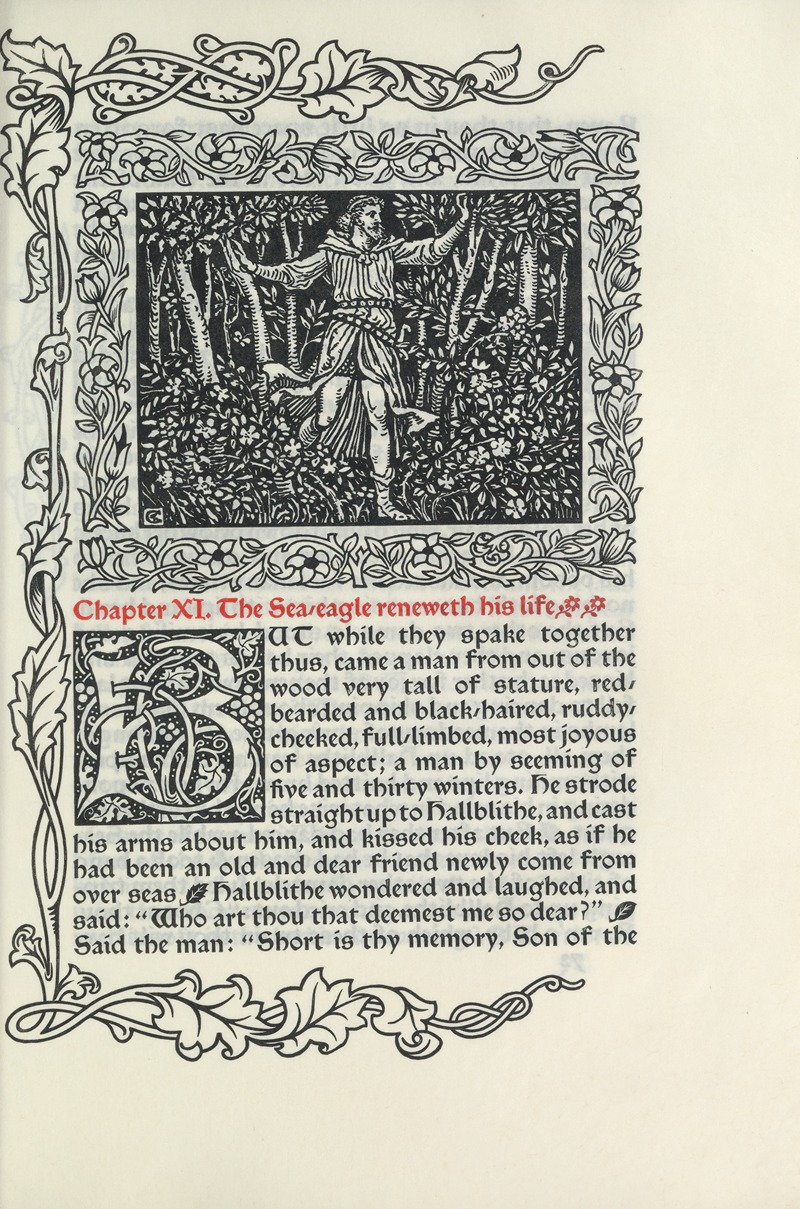 Chapter XI. The Sea-eagle reneweth his life
BUT while they spake together
thus, came a man from out of the
wood very tall of stature, red-
bearded and black-haired, ruddy-
cheeked, full-limbed, most joyous
of aspect; a man by seeming of
five and thirty winters. He strode
straight up to Hallblithe, and cast
his arms about him, and kissed his cheek, as if he
had been an old and dear friend newly come from
over seas Hallblithe wondered and laughed, and
said: "Who art thou that deemest me so dear?"
Said the man: "Short is thy memory, Son of the